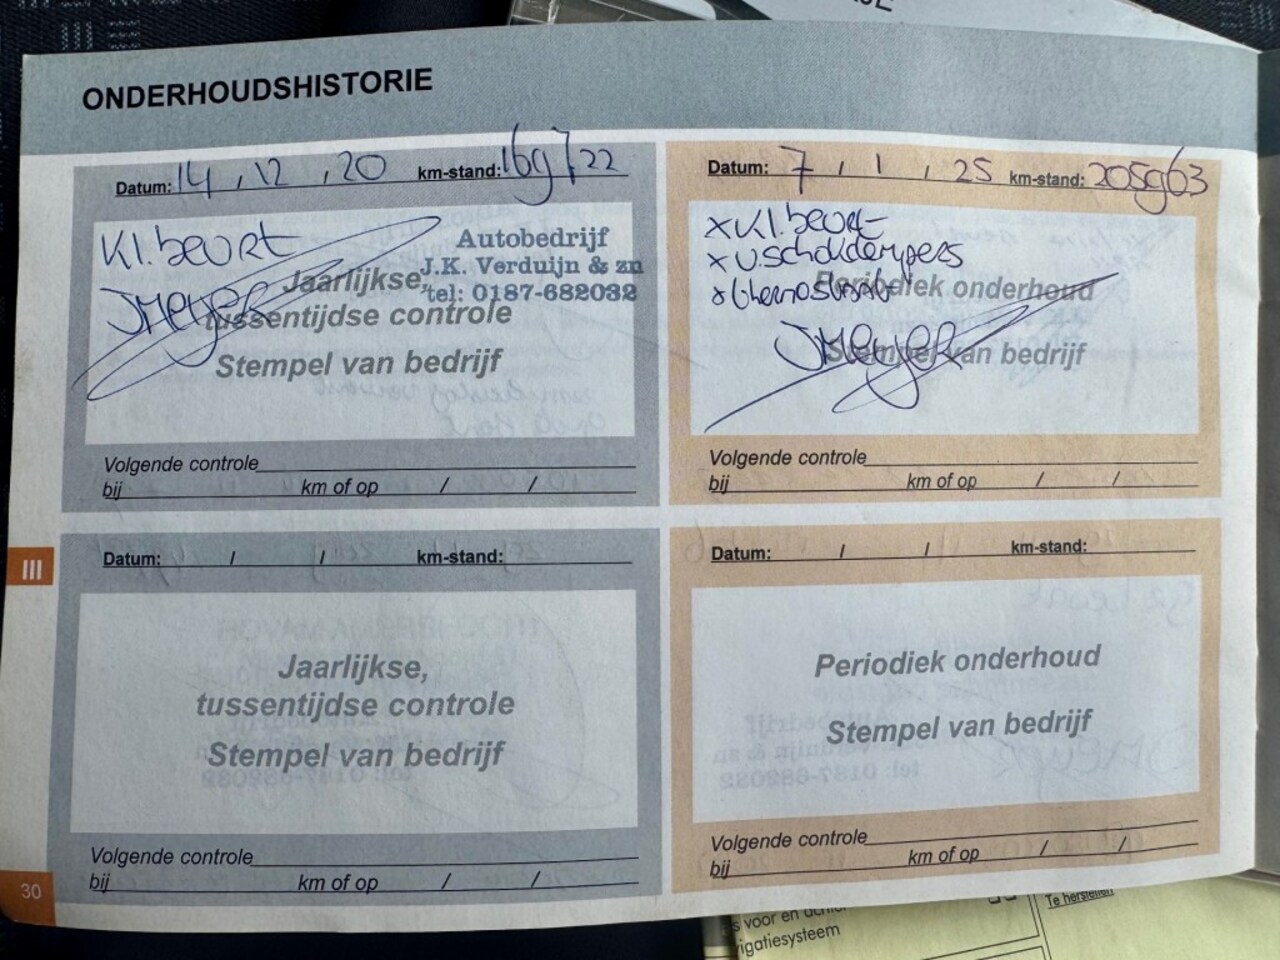 ONDERHOUDSHISTORIE
Datum: 14 , 12 , 20 km-stand: 169722
Kl. beurt
Autobedrijf
J.K. Verduijn & zn
tel: 0187-682032
JMeyer
Jaarlijkse,
tussentijdse controle
Stempel van bedrijf
Volgende controle
bij km of op / /
Datum: 7 , 1 , 25 km-stand: 205963
x Kl. beurt
x v. schokdempers
x thermostaat
Periodiek onderhoud
JMeyer
Stempel van bedrijf
Volgende controle
bij km of op / /
III
Datum: / / km-stand:
Jaarlijkse,
tussentijdse controle
Stempel van bedrijf
Volgende controle
bij km of op / /
Datum: / / km-stand:
Periodiek onderhoud
Stempel van bedrijf
Volgende controle
bij km of op / /
30
Te herstellen
s voor en
igatiesysteem